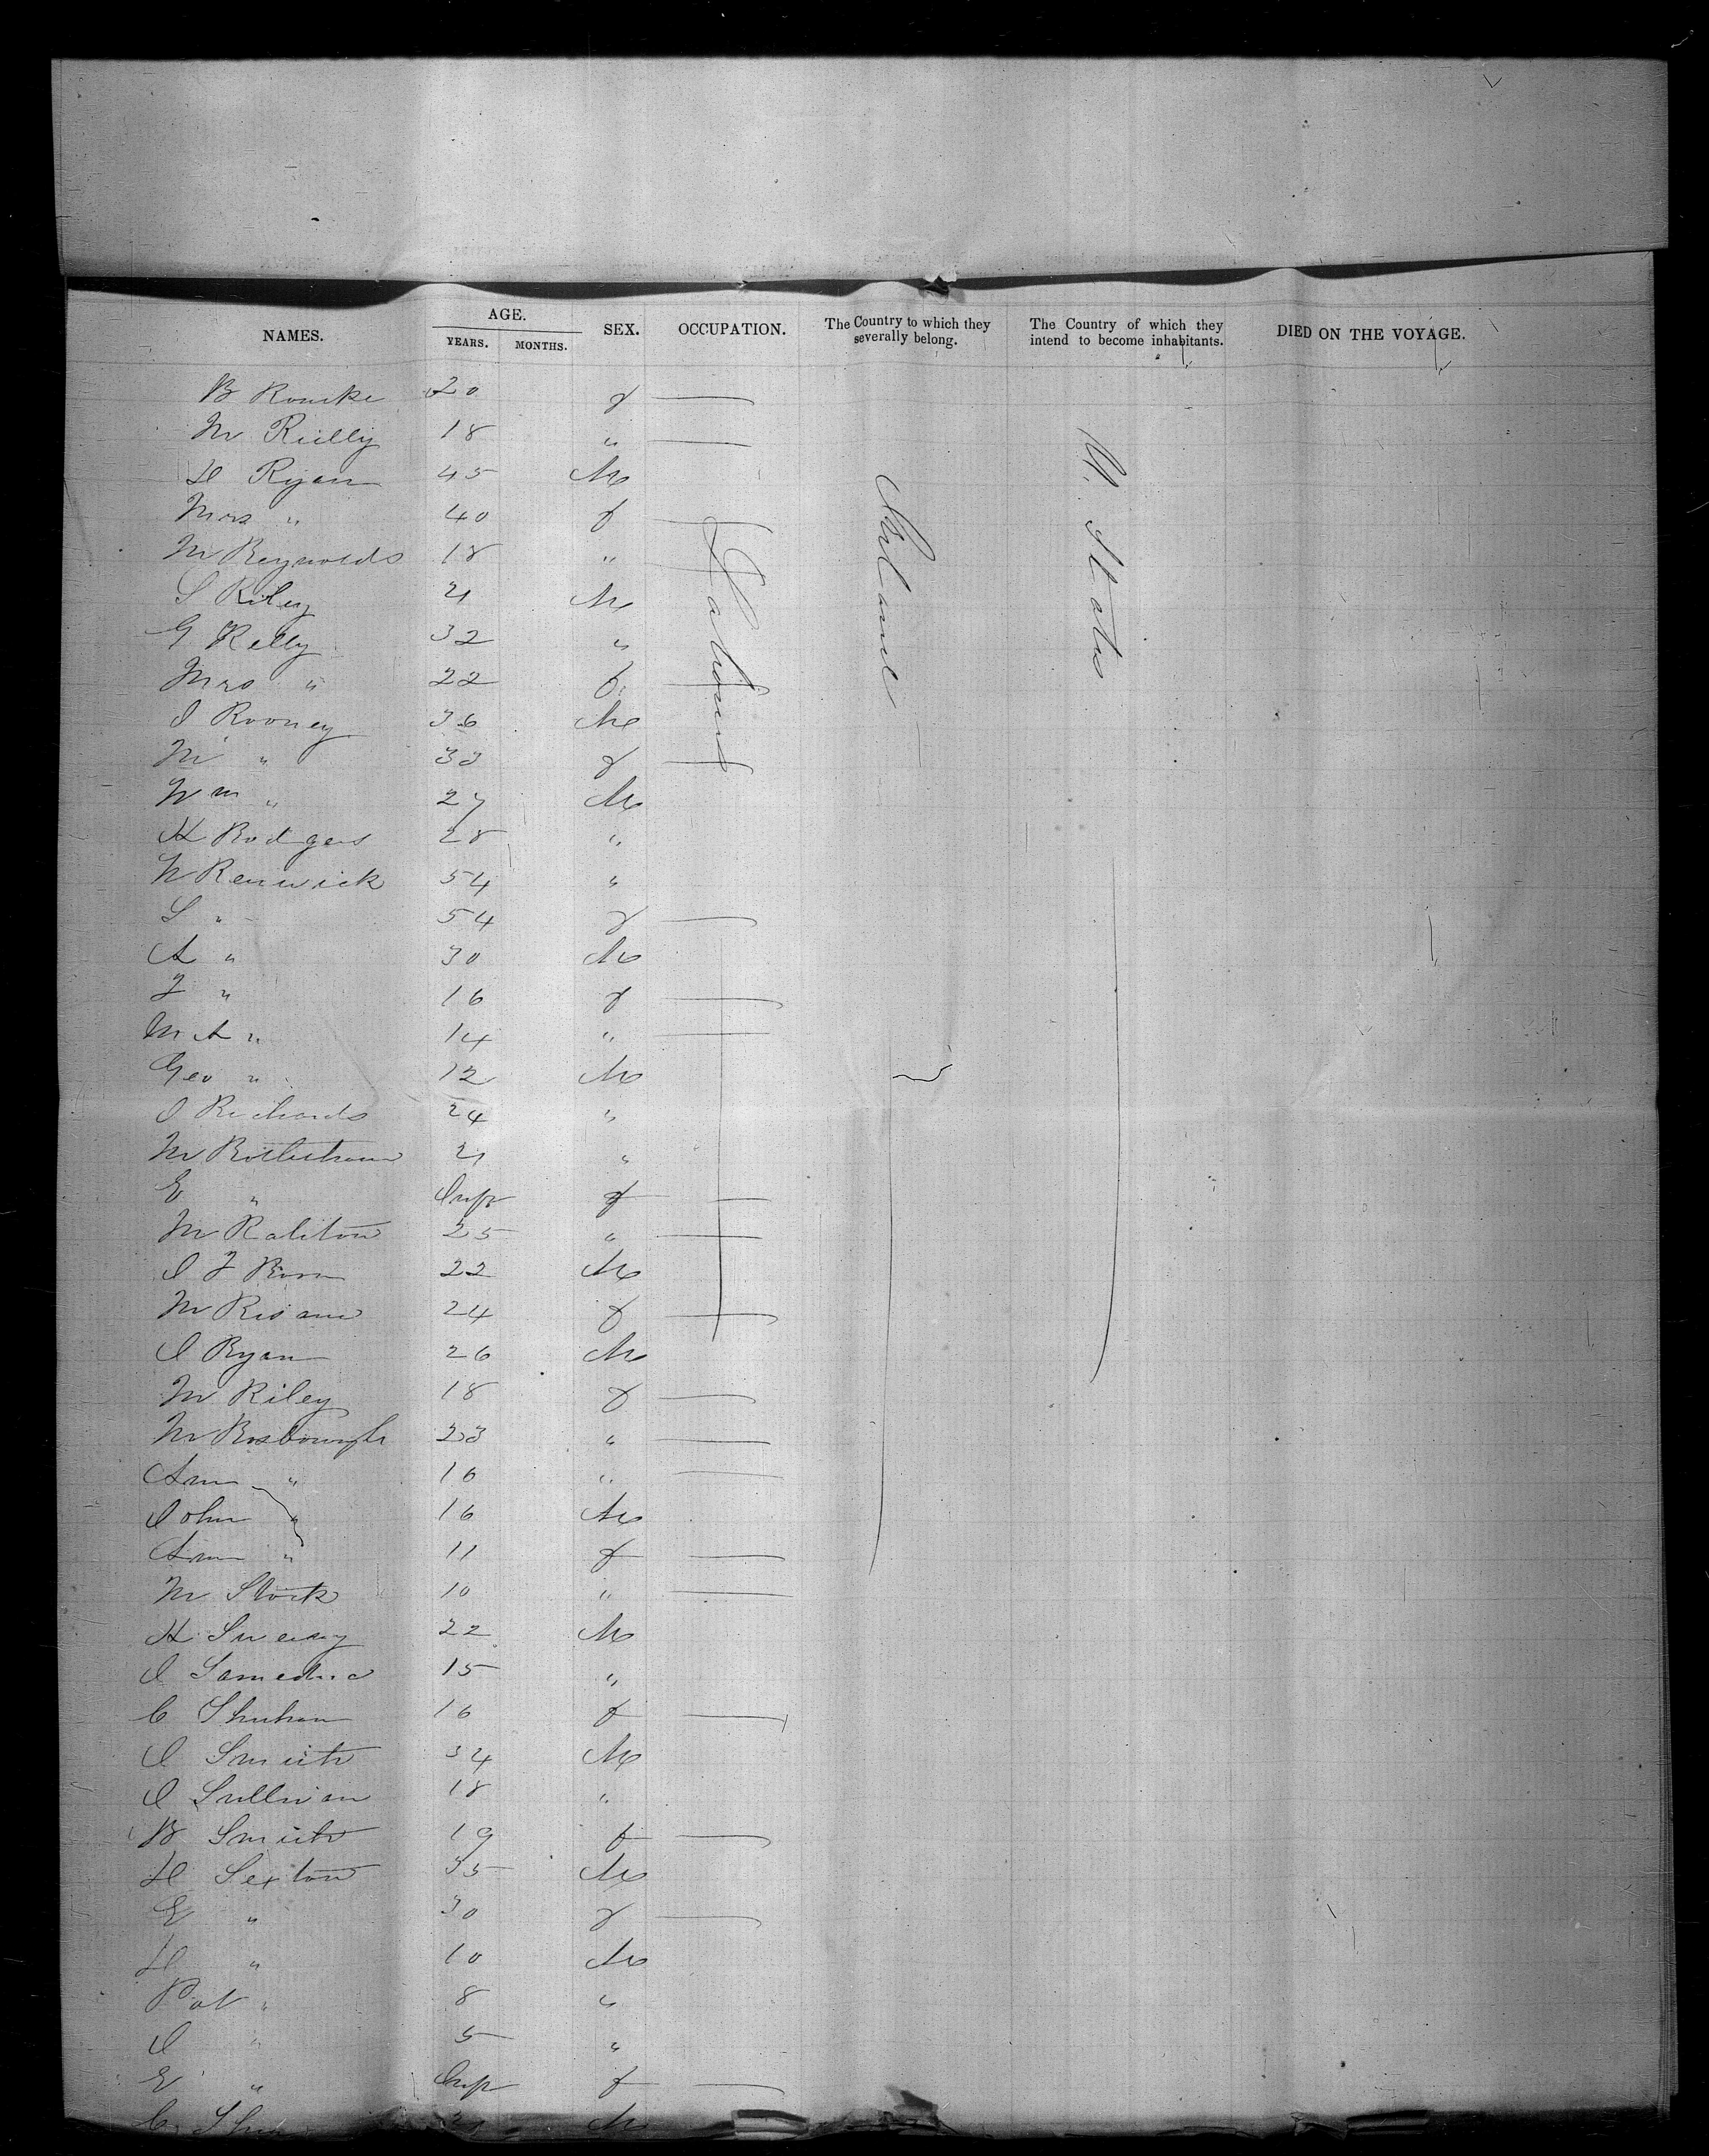 NAMES. AGE. SEX. OCCUPATION. The Country to which they severally belong. The Country of which they intend to become inhabitants. DIED ON THE VOYAGE.
YEARS. MONTHS.
B Rourke 20 f
M Reilly 18 "
H Ryan 45 M
Mrs " 40 f
M Reynolds 18 "
S Riley 21 M
G Kelly 32 "
Mrs " 22 f
J Rooney 36 M
M " 33 f
Wm " 27 M
H Rodgers 28 "
W Renwick 54 "
S " 54 f
A " 30 M
J " 16 f
M A " 14 "
Geo " 12 M
J Richards 24 "
M 21 "
E " Inft f
M Ralston 25 "
J J Ross 22 M
M 24 f
J Ryan 26 M
M Riley 18 f
M Rosborough 23 "
Ann " 16 "
John " 16 M
Ann " 11 f
M Stock 10 "
H Sweeny 22 M
J 15 "
C 16 f
J Smith 34 M
J Sullivan 18 "
B Smith 19 f
H Sexton 35 M
E " 30 f
H " 10 M
Pat " 8 "
J " 5 "
E " Inft f
C M
Labourers
Ireland
U. States